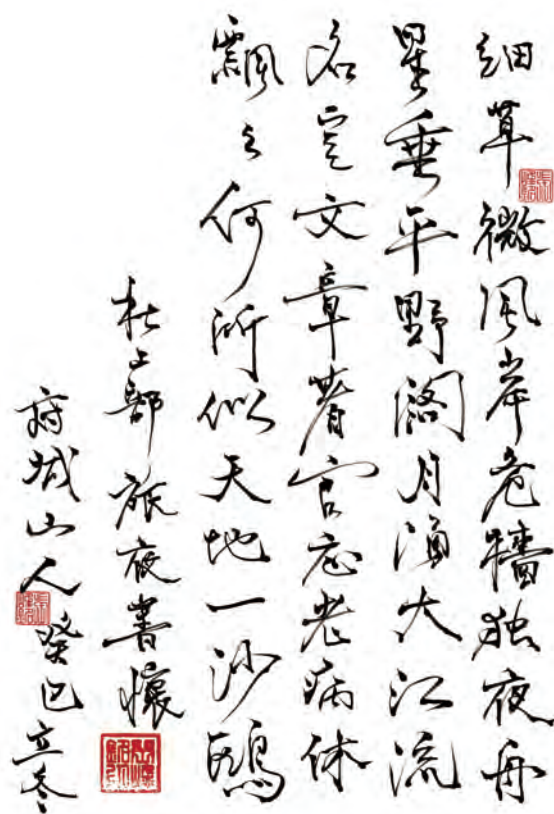 细草微风岸危樯独夜舟
星垂平野阔月涌大江流
名岂文章著官应老病休
飘々何所似天地一沙鸥
杜工部旅夜書懷
府城山人癸巳立冬